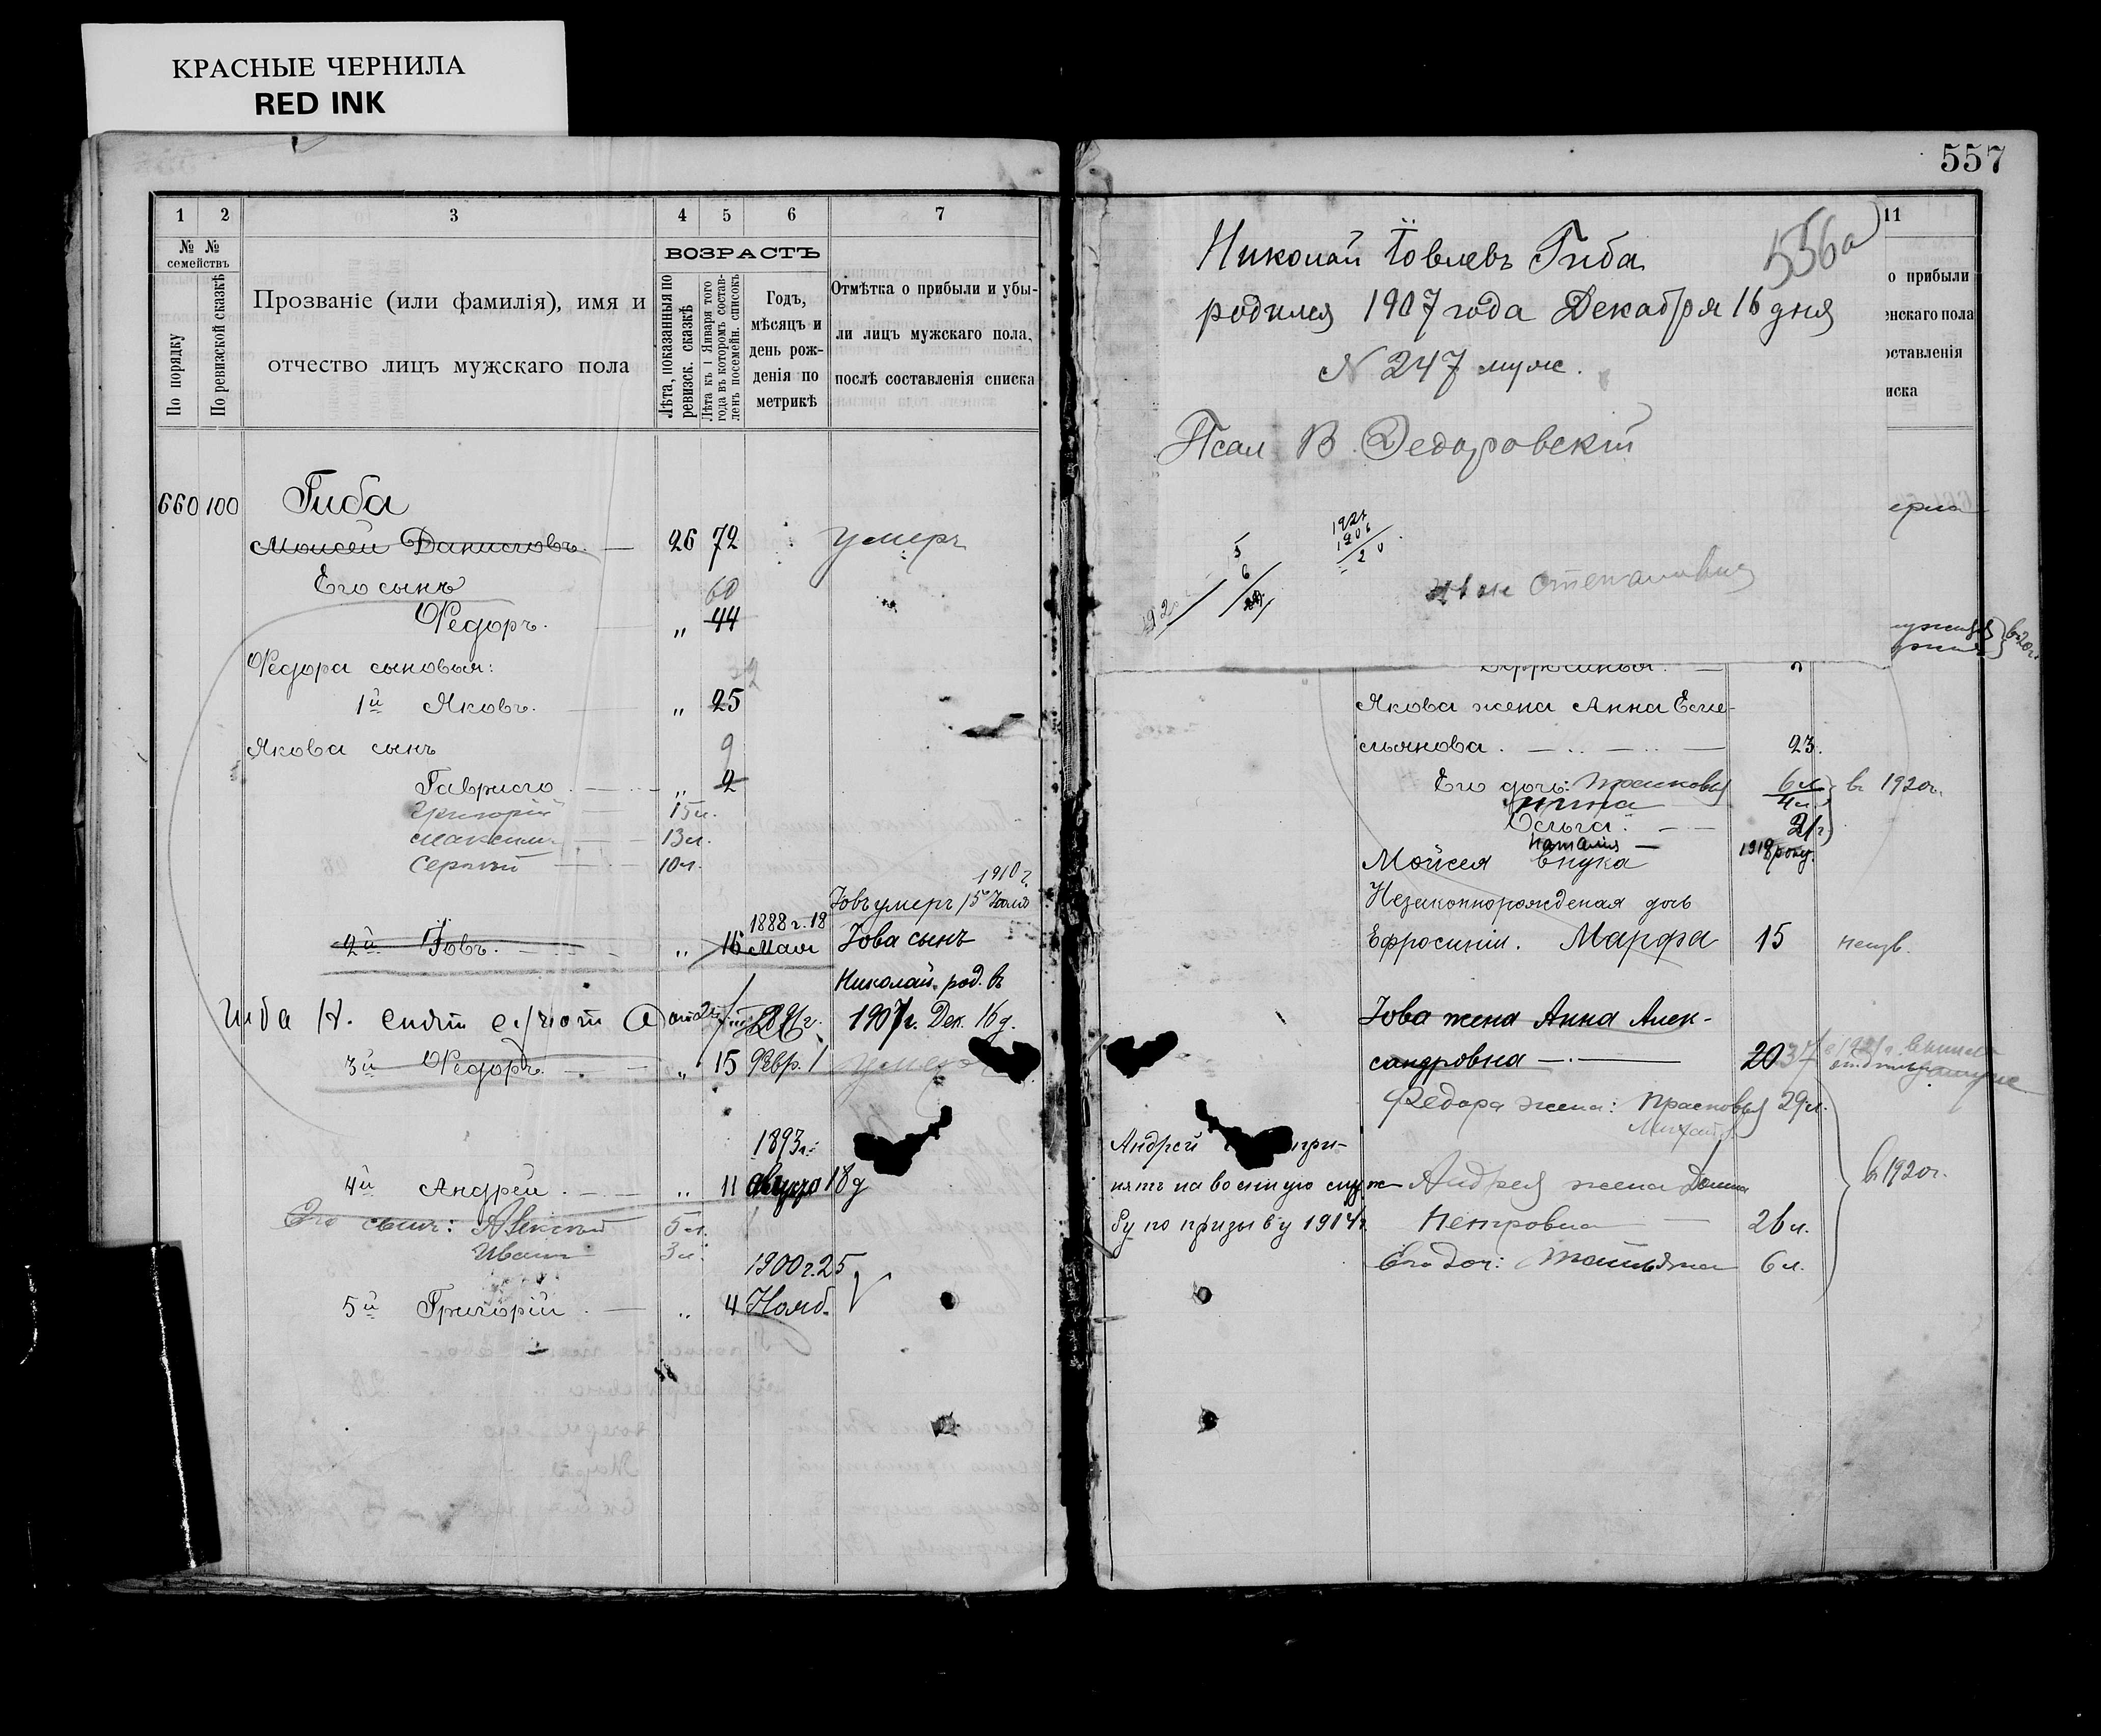 КРАСНЫЕ ЧЕРНИЛА
RED INK
1 2 3 4 5 6 7
№ № семействъ
По порядку
По ревизской сказкѣ
Прозваніе (или фамилія), имя и
отчество лицъ мужскаго пола
ВОЗРАСТЪ
Лѣта, показанныя по
ревизск. сказкѣ
Лѣта къ 1 Января того
года въ которомъ состав-
ленъ посемейн. списокъ
Годъ,
мѣсяцъ и
день рож-
денія по
метрикѣ
Отмѣтка о прибыли и убы-
ли лицъ мужскаго пола,
послѣ составленія списка
660 100 Гиба
Моисей Даниловъ. 26 72 умеръ
Его сынъ 60
Федоръ. „ 44
Федора сыновья:
1й Яковъ. „ 25
Якова сынъ 9
Гаврило „ 2
Григорій 15л.
Максим 13л.
Сергій 10л.
1910 г.
Іовъ умеръ 15
1888 г. 18
2й Іовъ. „ 16 Мая Іова сынъ
Николай, род. въ
Гиба Н. 1907 г. Дек. 16 д.
3й Федоръ. „ 15 Февр. 1 умер
1893 г.
4й Андрей. „ 11 августа 18 д
Его сын: Алексей 5л.
Иван 3л.
1900 г. 25
5й Григорій. „ 4 Нояб.
557
11
о прибыли
енскаго пола
оставленія
иска
556а
Николай Іовлевъ Гиба
родился 1907 года Декабря 16 дня
N 247 муж.
Псал В. Федоровскій
1926
1906
20
в 20 г.
Якова жена Анна Еме-
льянова. 23.
Его дочь: 6л в 1920 г.
4л.
Ольга. 2 г
Наталия 1919 року.
Мойсея внука
Незаконнорожденая дочь
Ефросиніи. Марфа 15 неизв.
Іова жена Анна Алек-
сандровна 20 37
Федора жена: Прасковья 29л.
Андрей при-
нятъ на военную служ- Андрея жена Домна
бу по призыву 1914 г. Петровна 26л. в 1920 г.
Его доч: Татьяна 6л.